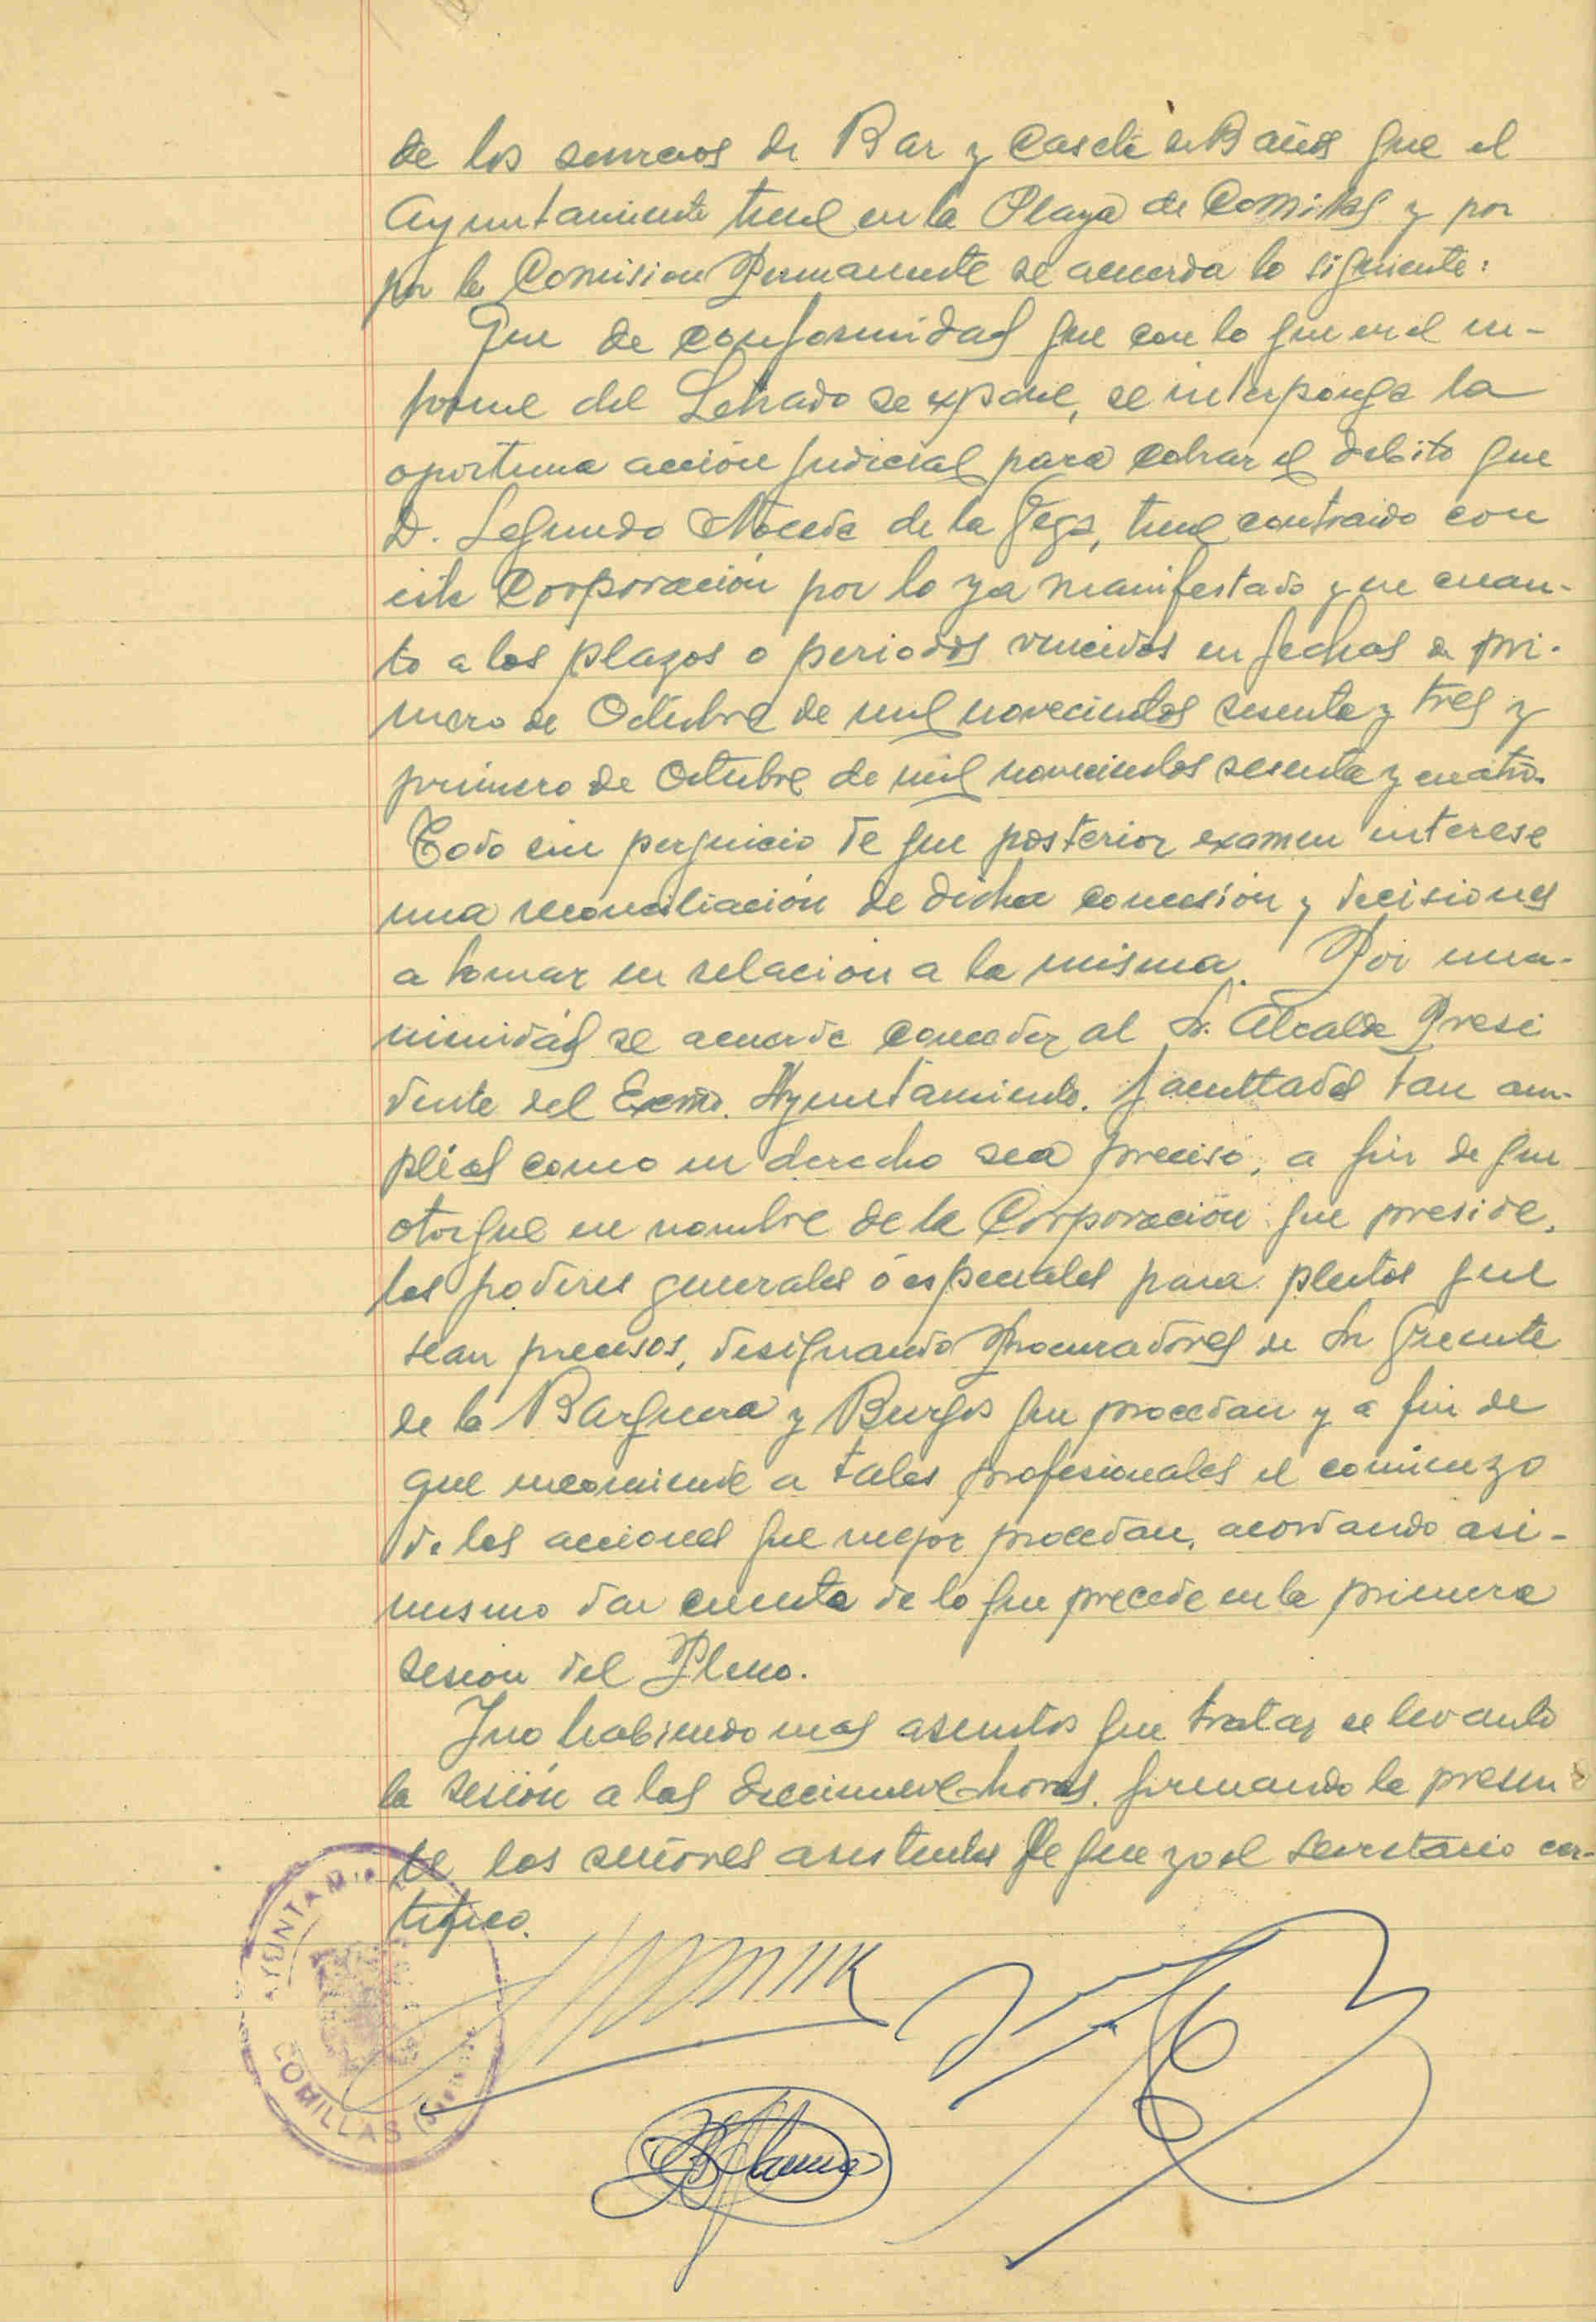 de los servicios de Bar y Caseta de Baños que el
Ayuntamiento tiene en la Playa de Comillas y por
por la Comision Permanente se acuerda lo siguiente:
Que de conformidad que con lo que en el in-
forme del Letrado se expone, se interponga la
oportuna acción judicial para cobrar el debito que
D. Segundo Noceda de la Vega, tiene contraido con
esta Corporación por lo ya manifestado y en cuan-
to a los plazos o periodos vencidos en fechas de pri-
mero de Octubre de mil novecientos sesenta y tres y
primero de Octubre de mil novecientos sesenta y cuatro.
Todo sin perjuicio de que posterior examen interese
una reconciliación de dicha concesión y decisiones
a tomar en relación a la misma. Por una-
nimidad se acuerda conceder al Sr. Alcalde Presi
dente del Excmo. Ayuntamiento. facultades tan am-
plias como en derecho sea preciso, a fin de que
otorgue en nombre de la Corporación que preside,
los poderes generales ó especiales para pleitos que
sean precisos, designando Procuradores de Sn Vicente
de la Barquera y Burgos que procedan y a fin de
que encomiende a tales profesionales el comienzo
de las acciones que mejor procedan, acordando asi-
mismo dar cuenta de lo que precede en la primera
sesion del Pleno.
Y no habiendo mas asuntos que tratar se levanto
la sesión a las diecinueve horas. firmando la presen
te los señores asistentes de que yo el Secretario cer-
tifico.
AYUNTAMIENTO
COMILLAS